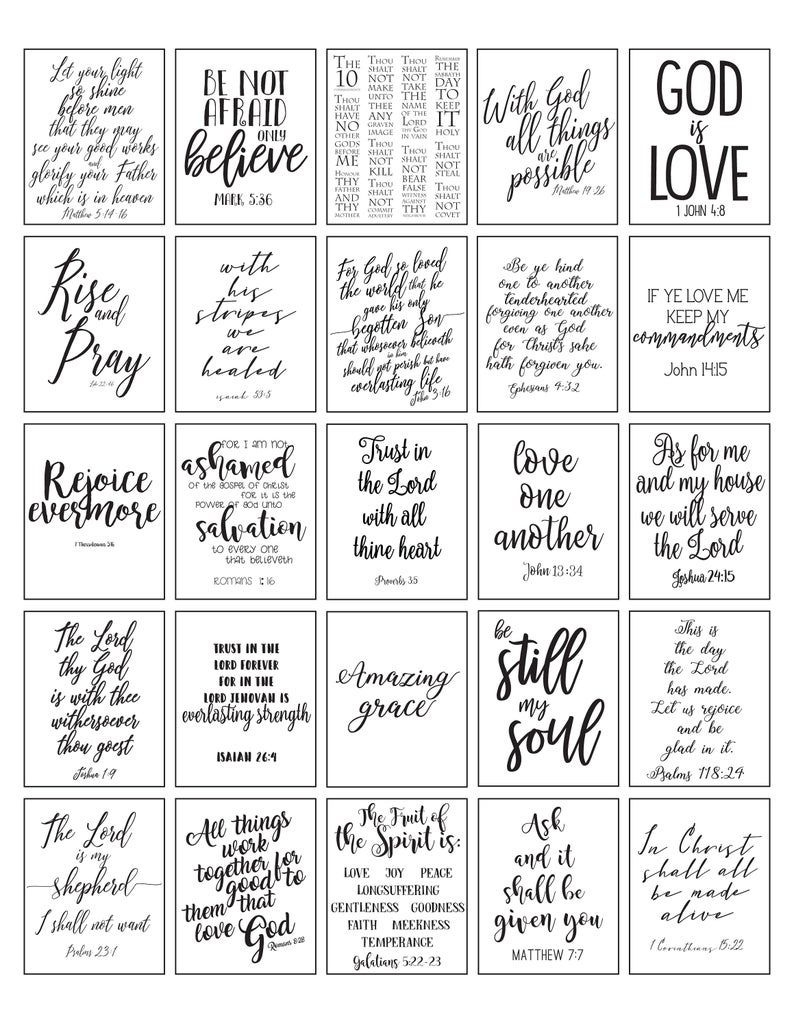 Let your light
so shine
before men
that they may
see your good works
and
glorify your Father
which is in heaven
Matthew 5:14-16
BE NOT
AFRAID
ONLY
believe
MARK 5:36
THE
10
COMMANDMENTS
THOU
SHALT
HAVE
NO
OTHER
GODS
BEFORE
ME
HONOUR
THY
FATHER
AND
THY
MOTHER
THOU
SHALT
NOT
MAKE
UNTO
THEE
ANY
GRAVEN
IMAGE
THOU
SHALT
NOT
KILL
THOU
SHALT
NOT
COMMIT
ADULTERY
THOU
SHALT
NOT
TAKE
THE
NAME
OF THE
LORD
THY GOD
IN VAIN
THOU
SHALT
NOT
BEAR
FALSE
WITNESS
AGAINST
THY
NEIGHBOUR
REMEMBER
THE
SABBATH
DAY
TO
KEEP
IT
HOLY
THOU
SHALT
NOT
STEAL
THOU
SHALT
NOT
COVET
With God
all things
are
possible
Matthew 19:26
GOD
is
LOVE
1 JOHN 4:8
Rise
and
Pray
Luke 22:46
with
his
stripes
we
are
healed
isaiah 53:5
For God so loved
the world that he
gave his only
begotten Son
that whosoever believeth
in him
should not perish but have
everlasting life
John 3:16
Be ye kind
one to another
tenderhearted
forgiving one another
even as God
for Christ's sake
hath forgiven you.
Ephesians 4:32
IF YE LOVE ME
KEEP MY
commandments
John 14:15
Rejoice
evermore
1 Thessalonians 5:16
FOR I AM NOT
ashamed
OF THE GOSPEL OF CHRIST
FOR IT IS THE
POWER OF GOD UNTO
salvation
TO EVERY ONE
THAT BELIEVETH
ROMANS 1:16
Trust in
the Lord
with all
thine heart
Proverbs 3:5
love
one
another
John 13:34
As for me
and my house
we will serve
the Lord
Joshua 24:15
The Lord
thy God
is with thee
withersoever
thou goest
Joshua 1:9
TRUST IN THE
LORD FOREVER
FOR IN THE
LORD JEHOVAH IS
everlasting strength
ISAIAH 26:4
Amazing
grace
be
still
my
soul
This is
the day
the Lord
has made.
Let us rejoice
and be
glad in it.
Psalms 118:24
The Lord
is my
shepherd
I shall not want
Psalms 23:1
All things
work
together for
good to
them that
love God
Romans 8:28
The Fruit of
the Spirit is:
LOVE JOY PEACE
LONGSUFFERING
GENTLENESS GOODNESS
FAITH MEEKNESS
TEMPERANCE
Galatians 5:22-23
Ask
and it
shall be
given you
MATTHEW 7:7
In Christ
shall all
be made
alive
1 Corinthians 15:22